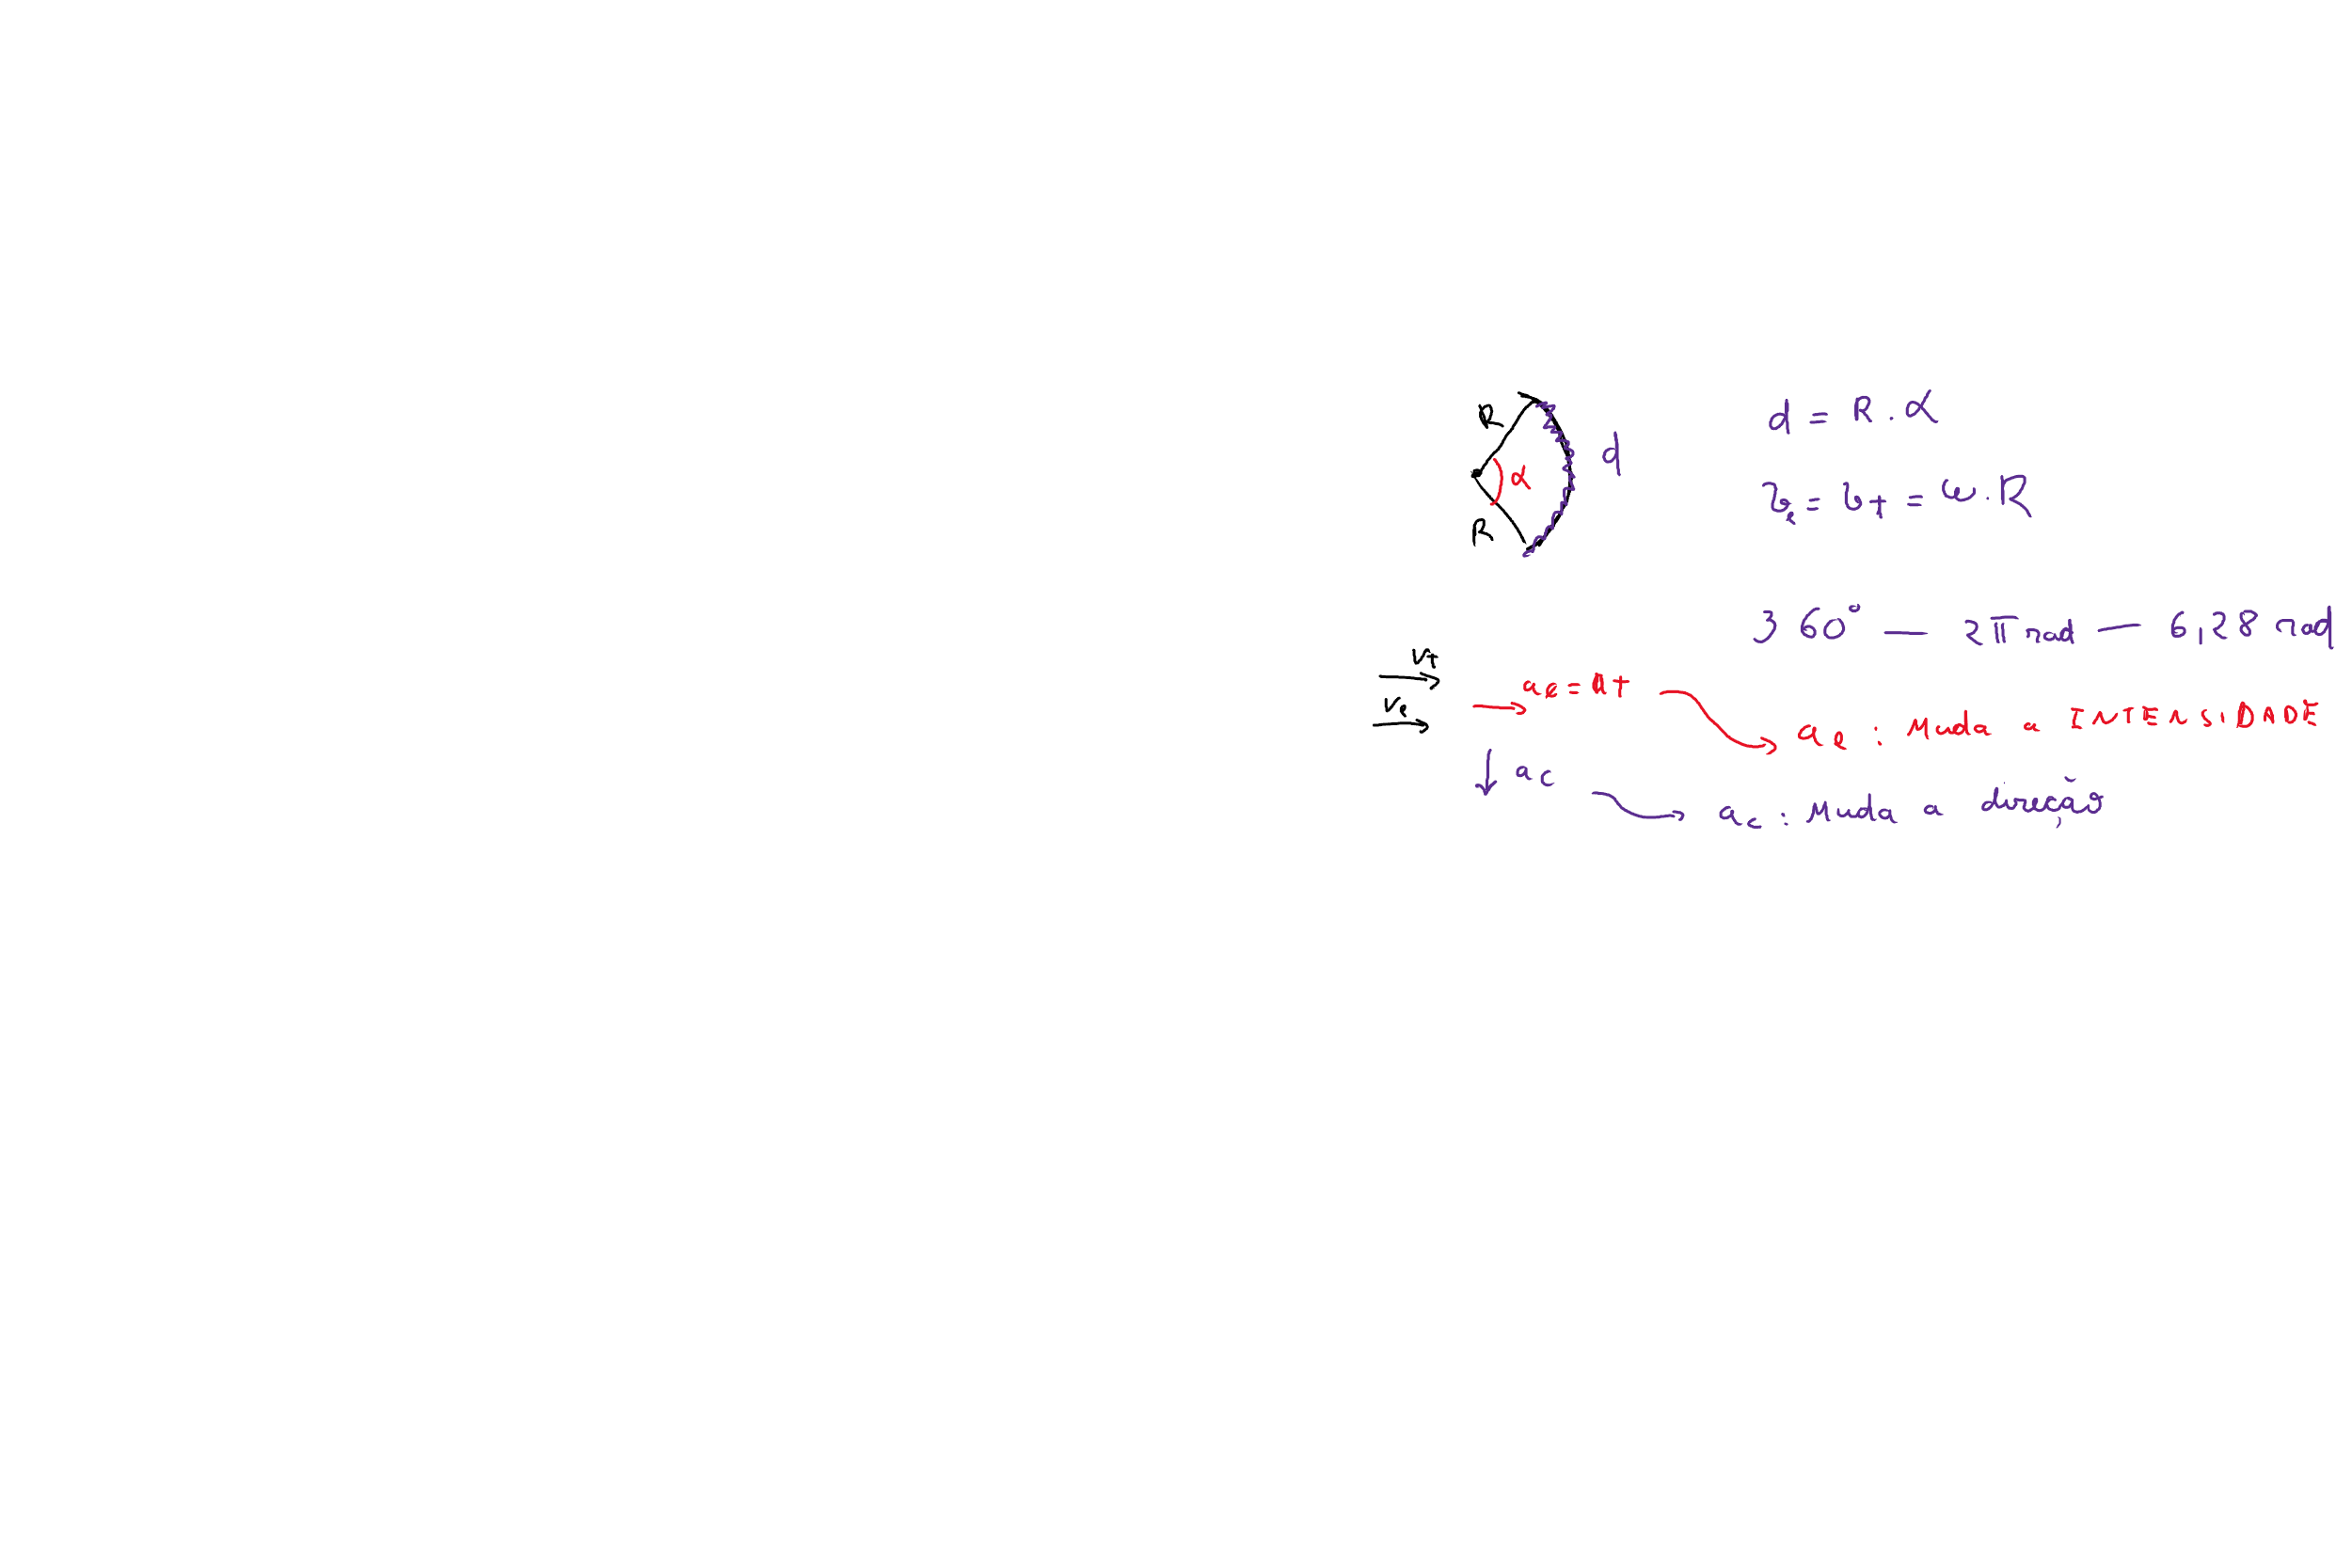 R
α
d
R
d = R . α
v_e = v_t = ω . R
360° — 2π rad — 6,28 rad
v_t
v_e
a_e = a_t
a_e : Muda a INTENSIDADE
a_c
a_c : Muda a direção